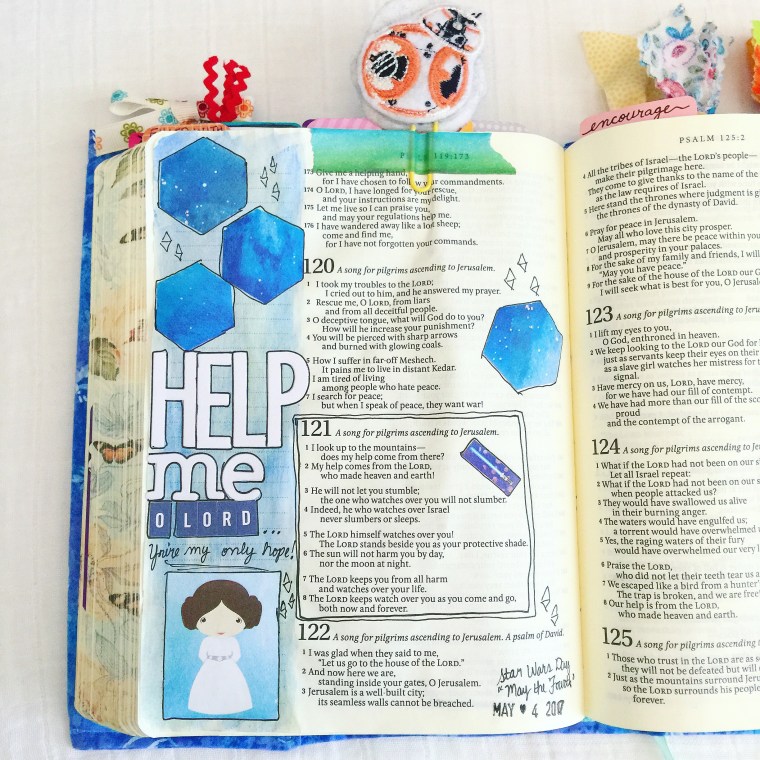 encourage
PSALM 119:173
PSALM 125:2
HELP
me
O LORD
...
You're my only hope!
173 Give me a helping hand,
for I have chosen to follow your commandments.
174 O LORD, I have longed for your rescue,
and your instructions are my delight.
175 Let me live so I can praise you,
and may your regulations help me.
176 I have wandered away like a lost sheep;
come and find me,
for I have not forgotten your commands.
120 A song for pilgrims ascending to Jerusalem.
1 I took my troubles to the LORD;
I cried out to him, and he answered my prayer.
2 Rescue me, O LORD, from liars
and from all deceitful people.
3 O deceptive tongue, what will God do to you?
How will he increase your punishment?
4 You will be pierced with sharp arrows
and burned with glowing coals.
5 How I suffer in far-off Meshech.
It pains me to live in distant Kedar.
6 I am tired of living
among people who hate peace.
7 I search for peace;
but when I speak of peace, they want war!
121 A song for pilgrims ascending to Jerusalem.
1 I look up to the mountains—
does my help come from there?
2 My help comes from the LORD,
who made heaven and earth!
3 He will not let you stumble;
the one who watches over you will not slumber.
4 Indeed, he who watches over Israel
never slumbers or sleeps.
5 The LORD himself watches over you!
The LORD stands beside you as your protective shade.
6 The sun will not harm you by day,
nor the moon at night.
7 The LORD keeps you from all harm
and watches over your life.
8 The LORD keeps watch over you as you come and go,
both now and forever.
122 A song for pilgrims ascending to Jerusalem. A psalm of David.
1 I was glad when they said to me,
"Let us go to the house of the LORD."
2 And now here we are,
standing inside your gates, O Jerusalem.
3 Jerusalem is a well-built city;
its seamless walls cannot be breached.
Star Wars Day
"May the Fourth"
MAY ♥ 4 2017
4 All the tribes of Israel—the LORD's people—
make their pilgrimage here.
They come to give thanks to the name of the
as the law requires of Israel.
5 Here stand the thrones where judgment is
the thrones of the dynasty of David.
6 Pray for peace in Jerusalem.
May all who love this city prosper.
7 O Jerusalem, may there be peace within
and prosperity in your palaces.
8 For the sake of my family and friends, I will
"May you have peace."
9 For the sake of the house of the LORD our
I will seek what is best for you, O
123 A song for pilgrims ascending to
1 I lift my eyes to you,
O God, enthroned in heaven.
2 We keep looking to the LORD our God for
just as servants keep their eyes on their
as a slave girl watches her mistress for
signal.
3 Have mercy on us, LORD, have mercy,
for we have had our fill of contempt.
4 We have had more than our fill of the
proud
and the contempt of the arrogant.
124 A song for pilgrims ascending to
1 What if the LORD had not been on our
Let all Israel repeat:
2 What if the LORD had not been on our
when people attacked us?
3 They would have swallowed us alive
in their burning anger.
4 The waters would have engulfed us;
a torrent would have overwhelmed
5 Yes, the raging waters of their fury
would have overwhelmed our very
6 Praise the LORD,
who did not let their teeth tear us
7 We escaped like a bird from a hunter's
The trap is broken, and we are
8 Our help is from the LORD,
who made heaven and earth.
125 A song for pilgrims ascending
1 Those who trust in the LORD are as
they will not be defeated but will
2 Just as the mountains surround
so the LORD surrounds his people,
forever.